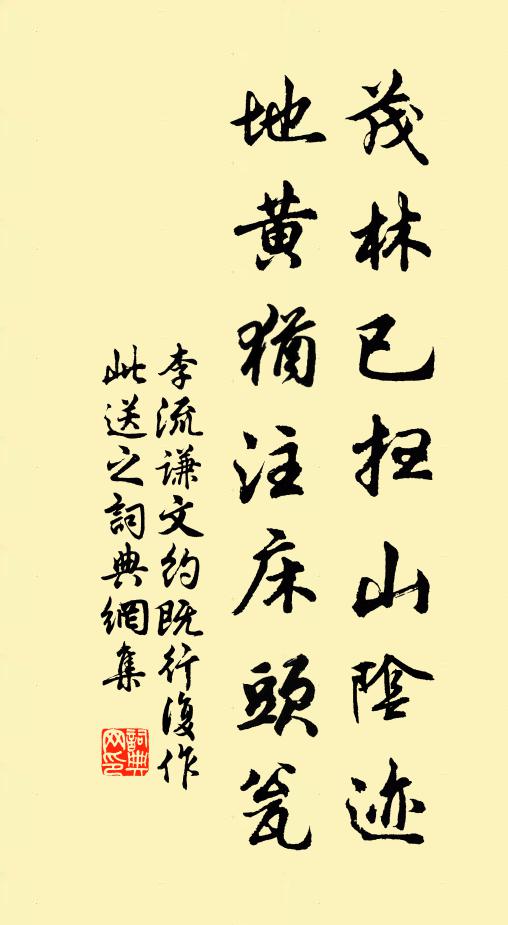 茂林已扫山陰迹
地黄猶注床頭瓮
李流谦文约既行復作
此送之詞典網集
詞典网印